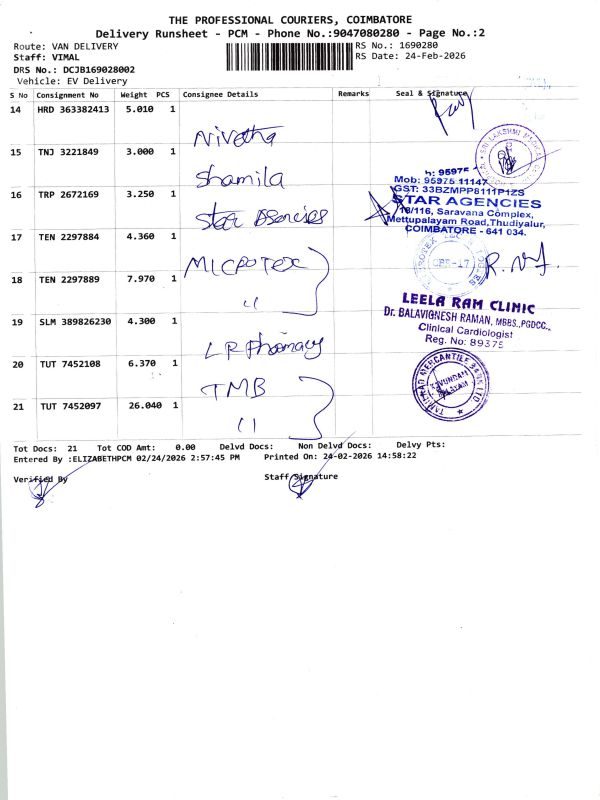 THE PROFESSIONAL COURIERS, COIMBATORE
Delivery Runsheet - PCM - Phone No.:9047080280 - Page No.:2
Route: VAN DELIVERY
RS No.: 1690280
Staff: VIMAL
RS Date: 24-Feb-2026
DRS No.: DCJB169028002
Vehicle: EV Delivery
S No Consignment No Weight PCS Consignee Details Remarks Seal & Signature
14 HRD 363382413 5.010 1 Nivetha
15 TNJ 3221849 3.000 1 Shamila
16 TRP 2672169 3.250 1 Star Agencies
17 TEN 2297884 4.360 1 MICROTEX
18 TEN 2297889 7.970 1 "
19 SLM 389826230 4.300 1 LR Phamacy
20 TUT 7452108 6.370 1 TMB
21 TUT 7452097 26.040 1 "
SRI LAKSHMI
Mob: 95975 11147
GST: 33BZMPP8111P1ZS
STAR AGENCIES
18/116, Saravana Complex,
Mettupalayam Road, Thudiyalur,
COIMBATORE - 641 034.
CBE-17
LEELA RAM CLINIC
Dr. BALAVIGNESH RAMAN, MBBS.,PGDCC.,
Clinical Cardiologist
Reg. No: 89375
MERCANTILE BANK LTD.
Tot Docs: 21 Tot COD Amt: 0.00 Delvd Docs: Non Delvd Docs: Delvy Pts:
Entered By :ELIZABETHPCM 02/24/2026 2:57:45 PM Printed On: 24-02-2026 14:58:22
Verified By Staff Signature